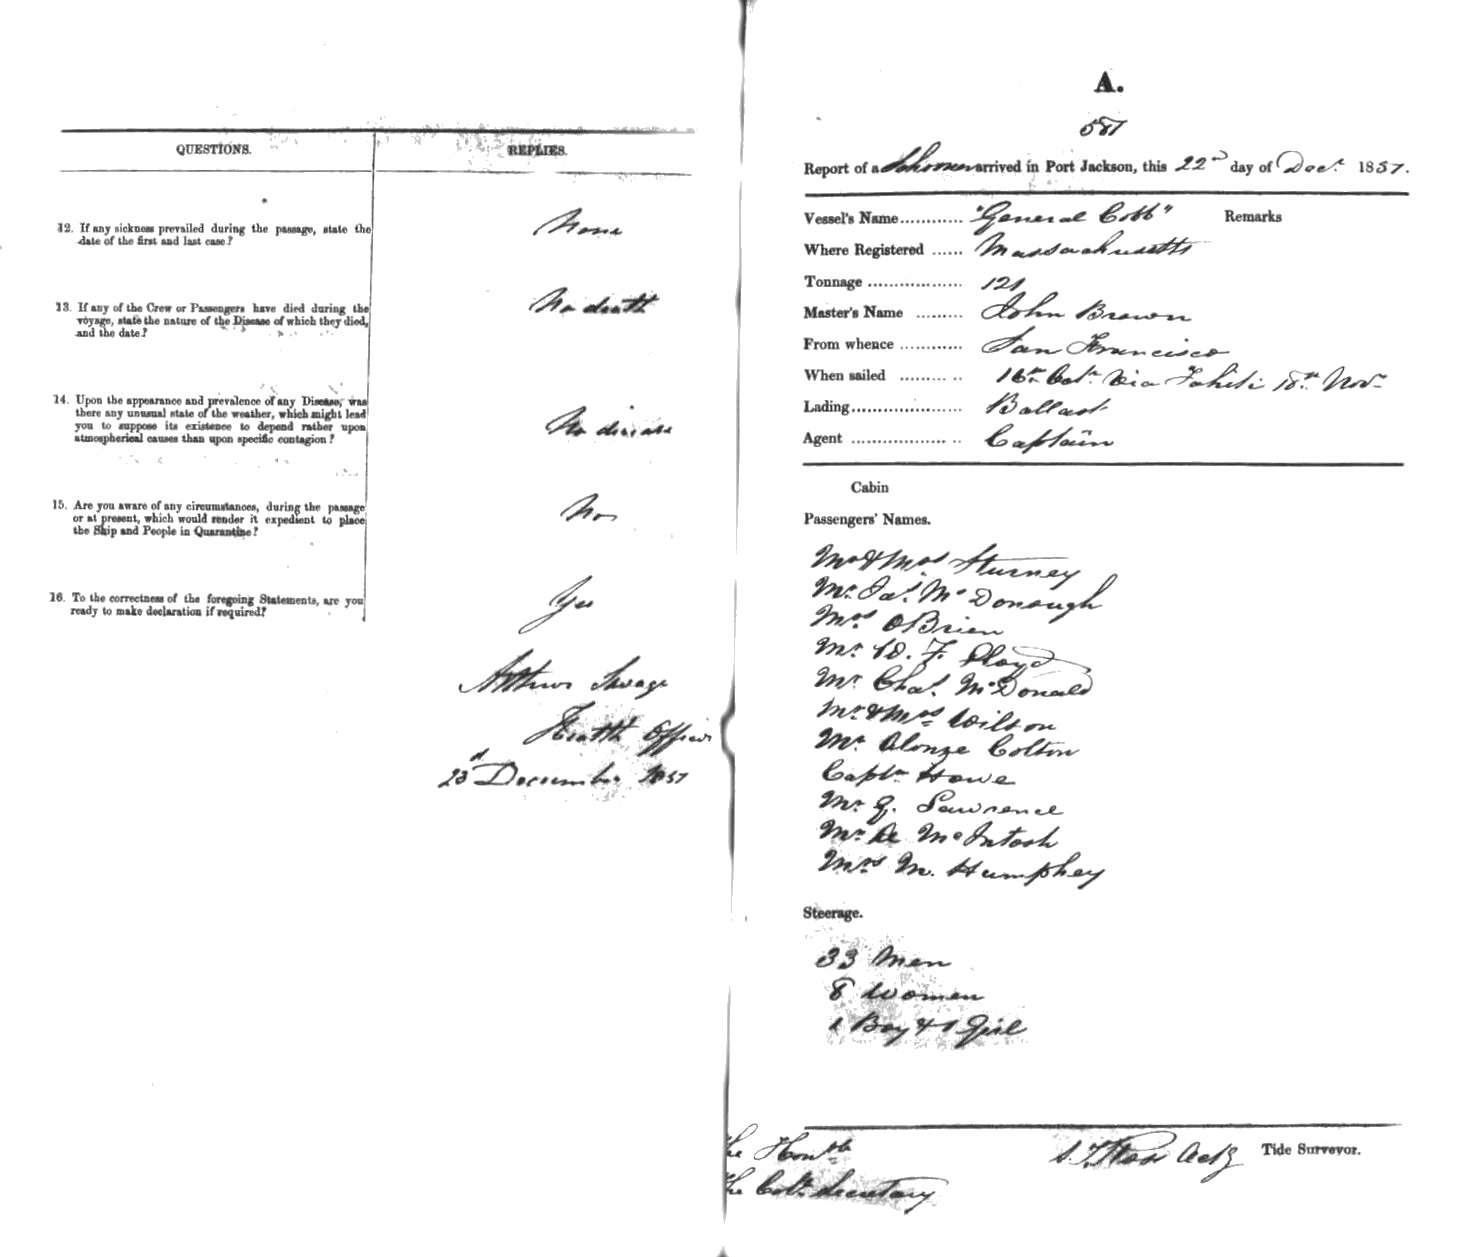 QUESTIONS.
REPLIES.
12. If any sickness prevailed during the passage, state the
date of the first and last case?
None
13. If any of the Crew or Passengers have died during the
voyage, state the nature of the Disease of which they died,
and the date?
No death
14. Upon the appearance and prevalence of any Disease, was
there any unusual state of the weather, which might lead
you to suppose its existence to depend rather upon
atmospherical causes than upon specific contagion?
No disease
15. Are you aware of any circumstances, during the passage
or at present, which would render it expedient to place
the Ship and People in Quarantine?
No
16. To the correctness of the foregoing Statements, are you
ready to make declaration if required?
Yes
Arthur Savage
Health Officer
23d December 1857
A.
Report of a Schooner arrived in Port Jackson, this 22nd day of Decr. 1857.
Vessel's Name "General Cobb" Remarks
Where Registered Massachusetts
Tonnage 121
Master's Name John Brown
From whence San Francisco
When sailed 16th Octr. Via Tahiti 18th Novr
Lading Ballast
Agent Captain
Cabin
Passengers' Names.
Mr & Mrs Sturney
Mr. Jas. McDonough
Mrs. OBrien
Mr. W. F. Floyd
Mr. Chas. McDonald
Mr & Mrs Wilson
Mr Alonze Colton
Captn Howe
Mr G. Lawrence
Mr McIntosh
Mrs M. Humphey
Steerage.
33 Men
8 Women
1 Boy & 1 Girl
The Honble
The Coll. Secretary
Actg Tide Surveyor.